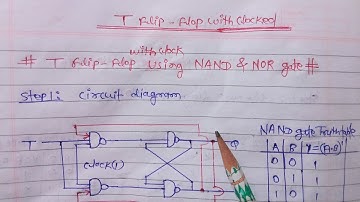 T Flip-Flop with clocked
with clock
# T Flip-Flop Using NAND & NOR gate #
Step1: Circuit diagram
NAND gate Truth table
A B Y=(A·B)'
0 0 1
0 1 1
1 0 1
T
clock(1)
Q